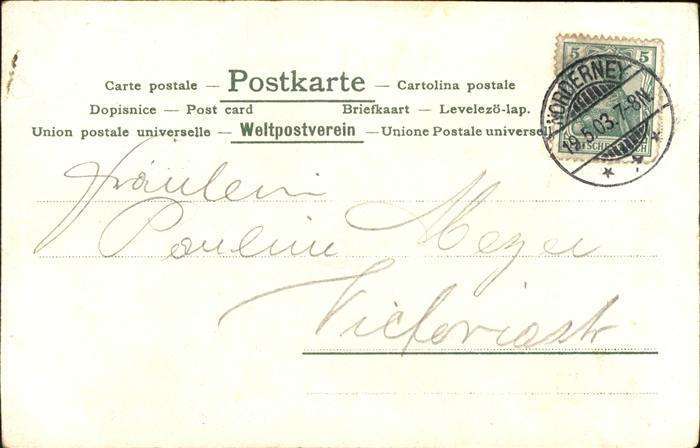 Carte postale — Postkarte — Cartolina postale
Dopisnice — Post card Briefkaart — Levelező-lap.
Union postale universelle — Weltpostverein — Unione Postale universel
5 5
NORDERNEY
19.5.03.7-8N.
Fräulein
Pauline Meyer
Victoriastr